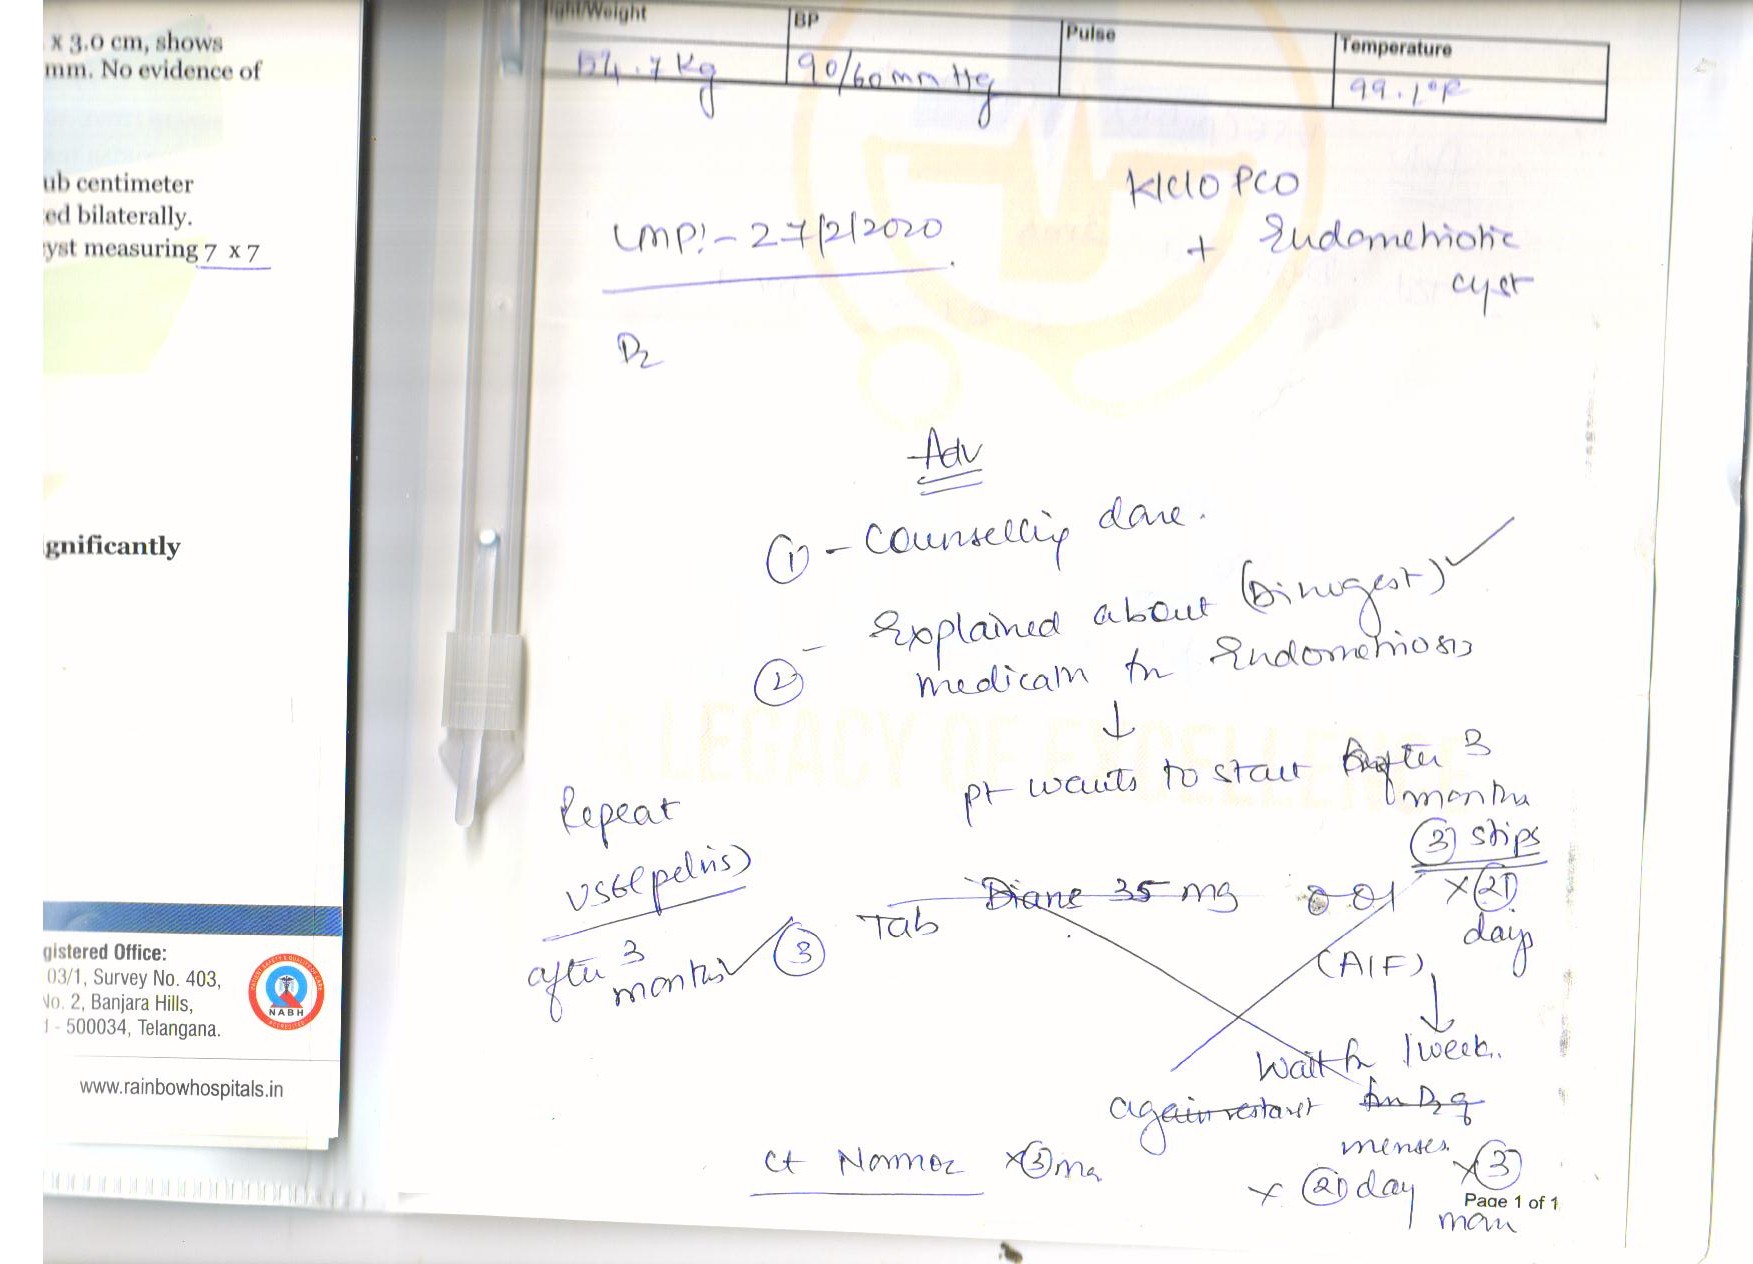 x 3.0 cm, shows
mm. No evidence of
ub centimeter
ed bilaterally.
yst measuring 7 x 7
gnificantly
gistered Office:
03/1, Survey No. 403,
No. 2, Banjara Hills,
1 - 500034, Telangana.
NABH
www.rainbowhospitals.in
ight/Weight BP Pulse Temperature
54.7 Kg 90/60 mm Hg 99.1°F
K/C/O PCO
+ Endometriotic
cyst
LMP:- 27/2/2020
Adv
① - Counselling done.
② - Explained about (Dinogest)
medicatn fr Endometriosis
↓
pt wants to start after 3
months
A LEGACY OF EXCELLENCE
Repeat
USG(pelvis)
after 3
months
③ Tab Diane 35 mg 0-0-1
③ strips
x 21
days
(A/F)
↓
Wait fr 1 week.
again restart
menses.
x 21 day x ③
mon
ct Normoz x ③ mn
Page 1 of 1